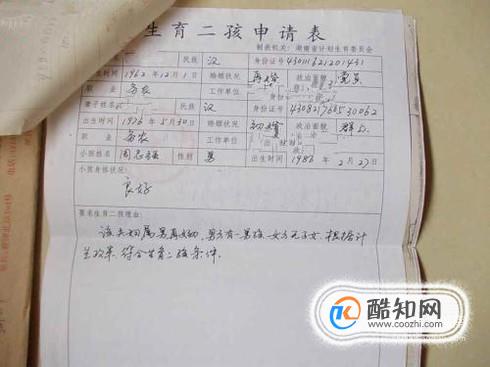 生育二孩申请表
制表机关：湖南省计划生育委员会
民族 汉 身份证号
出生时间 1962年12月1日 婚姻状况 再婚 政治面貌 党员
职业 务农 工作单位
妻子姓名 民族 汉 身份证号
出生时间 1976年5月30日 婚姻状况 初婚 政治面貌 群众
职业 务农 工作单位
小孩姓名 周志强 性别 男 出生时间 1986年2月27日
小孩身体状况：
良好
要求生育二孩理由：
该夫妇属男再女初，男方有一男孩，女方无子女，根据计
生政策，符合生育二孩条件。
酷知网
www.coozhi.com